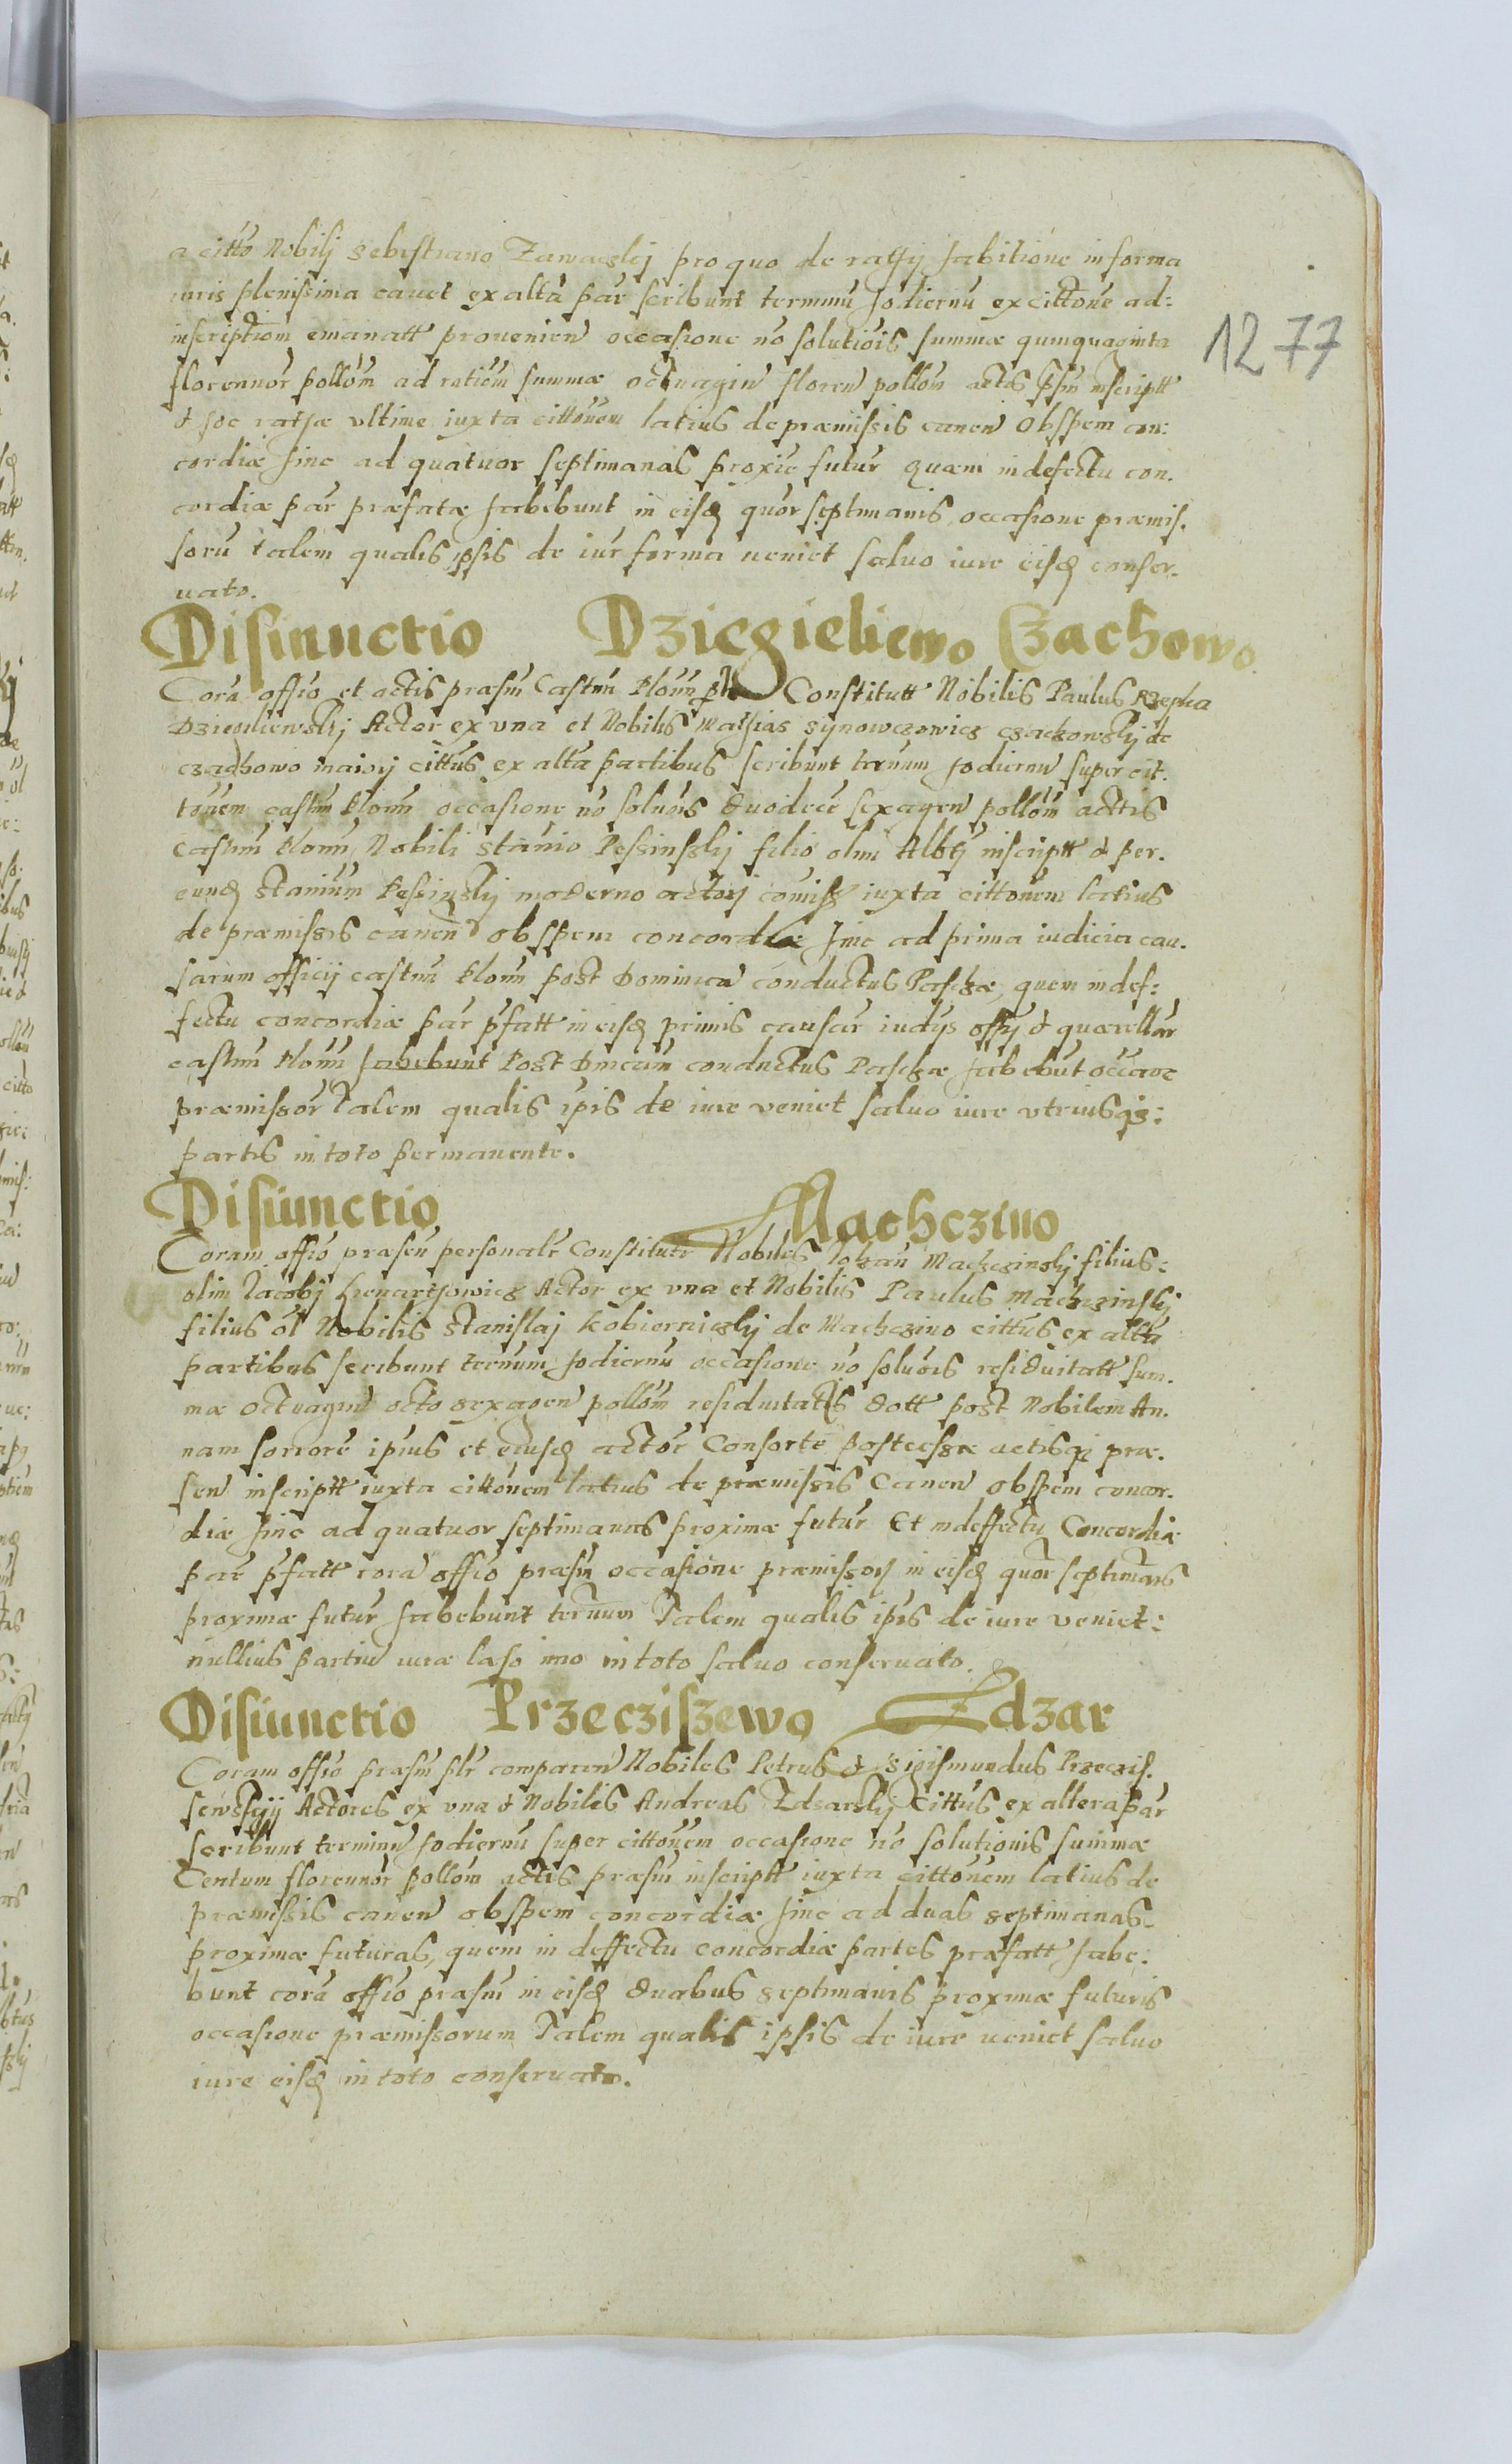 a citto Nobilj Sebestiano Zawaczkj pro quo de rathij habitione in forma
iuris plenissima cauet ex altā par scribunt terminū hodiernū ex cittone ad:
inscriptiom emanatt prouenien occasione nō solutiōis summæ quinquaginta
florennōr pollōm ad ratiōm summæ octuagin floren pollōm actis pñ inscriptt
& hoc rathæ vltime iuxta cittōnem latius de præmissis canen Obspem con:
cordiæ hinc ad quatuor septimanas proxie futur quæm in defectu con.
cordiæ par præfatæ habebunt in eisd quōr septimanis occasione præmis.
sorū talem qualis ipsis de iur forma ueniet saluo iure eisd conser-
uato.
Disiunctio Dziegieliewo Czachowo.
Corā offio et actis præsñ Castrñ Plonñ Constitutt Nobilis Paulus Rzepka
Dziegieliewskij Actor ex vna et Nobilis Mathias Synowczowicz czachowskij de
czachowo maiorj cittus ex altā partibus scribunt termnum hodiernū super cit.
tōnem castrñ Plonñ occasione nō solnōis duodecē sexagen pollōm acttis
castrñ Plonñ Nobili Stanio Pessinskij filio olim Albtj inscriptt & per.
eund Stanium Pessinskij moderno actorj comiss iuxta cittonem latius
de præmissis canen ob spem concordiæ hinc ad prima iudicia cau.
sarum officij castrñ Plonñ post Dominicā conductus Paschæ, quem in def:
fectu concordiæ par pfatt in eisd primis causar iudys offij & quærellar
castrñ Plonñ habebunt Post Dnicam conductus Paschæ habebūt occaōe
præmissōr Talem qualis ipis de iure veniet saluo iure vtriusqz:
partis in toto permanente.
Disiunctio Machczino
Coram offio præsen personalr Constituti Nobiles Iohan Machczinskij filius:
olim Iacobj Lienarthowicz Actor ex vna et Nobilis Paulus Machczinskij
filius ol Nobilis Stanislaj Kobierniczkij de Machczino cittus ex altā
partibus scribunt termnum hodiernū occasione nō solnōis residuitatt sum.
mæ Octuagin octo sexagen pollōm residuitatis dott post Nobilem An.
nam sororē ipius et eiusd actōr Consortē postcessæ actisq præ.
sen inscriptt iuxta cittōnem latius de præmissis Canen obspem concor.
diæ hinc ad quatuor septimanas proximæ futur Et in deffectu Concordiæ
par pfatt corā offio præsñ occasione præmissor in eisd quōr septimanis
proximæ futur habebunt termnum Talem qualis ipis de iure veniet:
nullius partiū iuræ læso imo in toto saluo conseruato.
Disiunctio Przecziszewo Zdzar
Coram offio præsñ plr comparen Nobiles Petrus & Sigismundus Przeczis.
sewskyij Actores ex vna & Nobilis Andreas Zdsarskij Cittus ex altera par
scribunt terminū hodiernū super cittōnem occasione nō solutionis summæ
Centum florennōr pollōm actis præsñ inscriptt iuxta cittōnem latius de
præmissis canen obspem concordiæ hinc ad duas septimanas
proximæ futuras, quem in deffectu concordiæ partes præfatt habe:
bunt corā offio præsñ in eisd duabus septimanis proximæ futuris
occasione præmissorum Talem qualis ipsis de iure ueniet saluo
iure eisd in toto conseruato.
1277